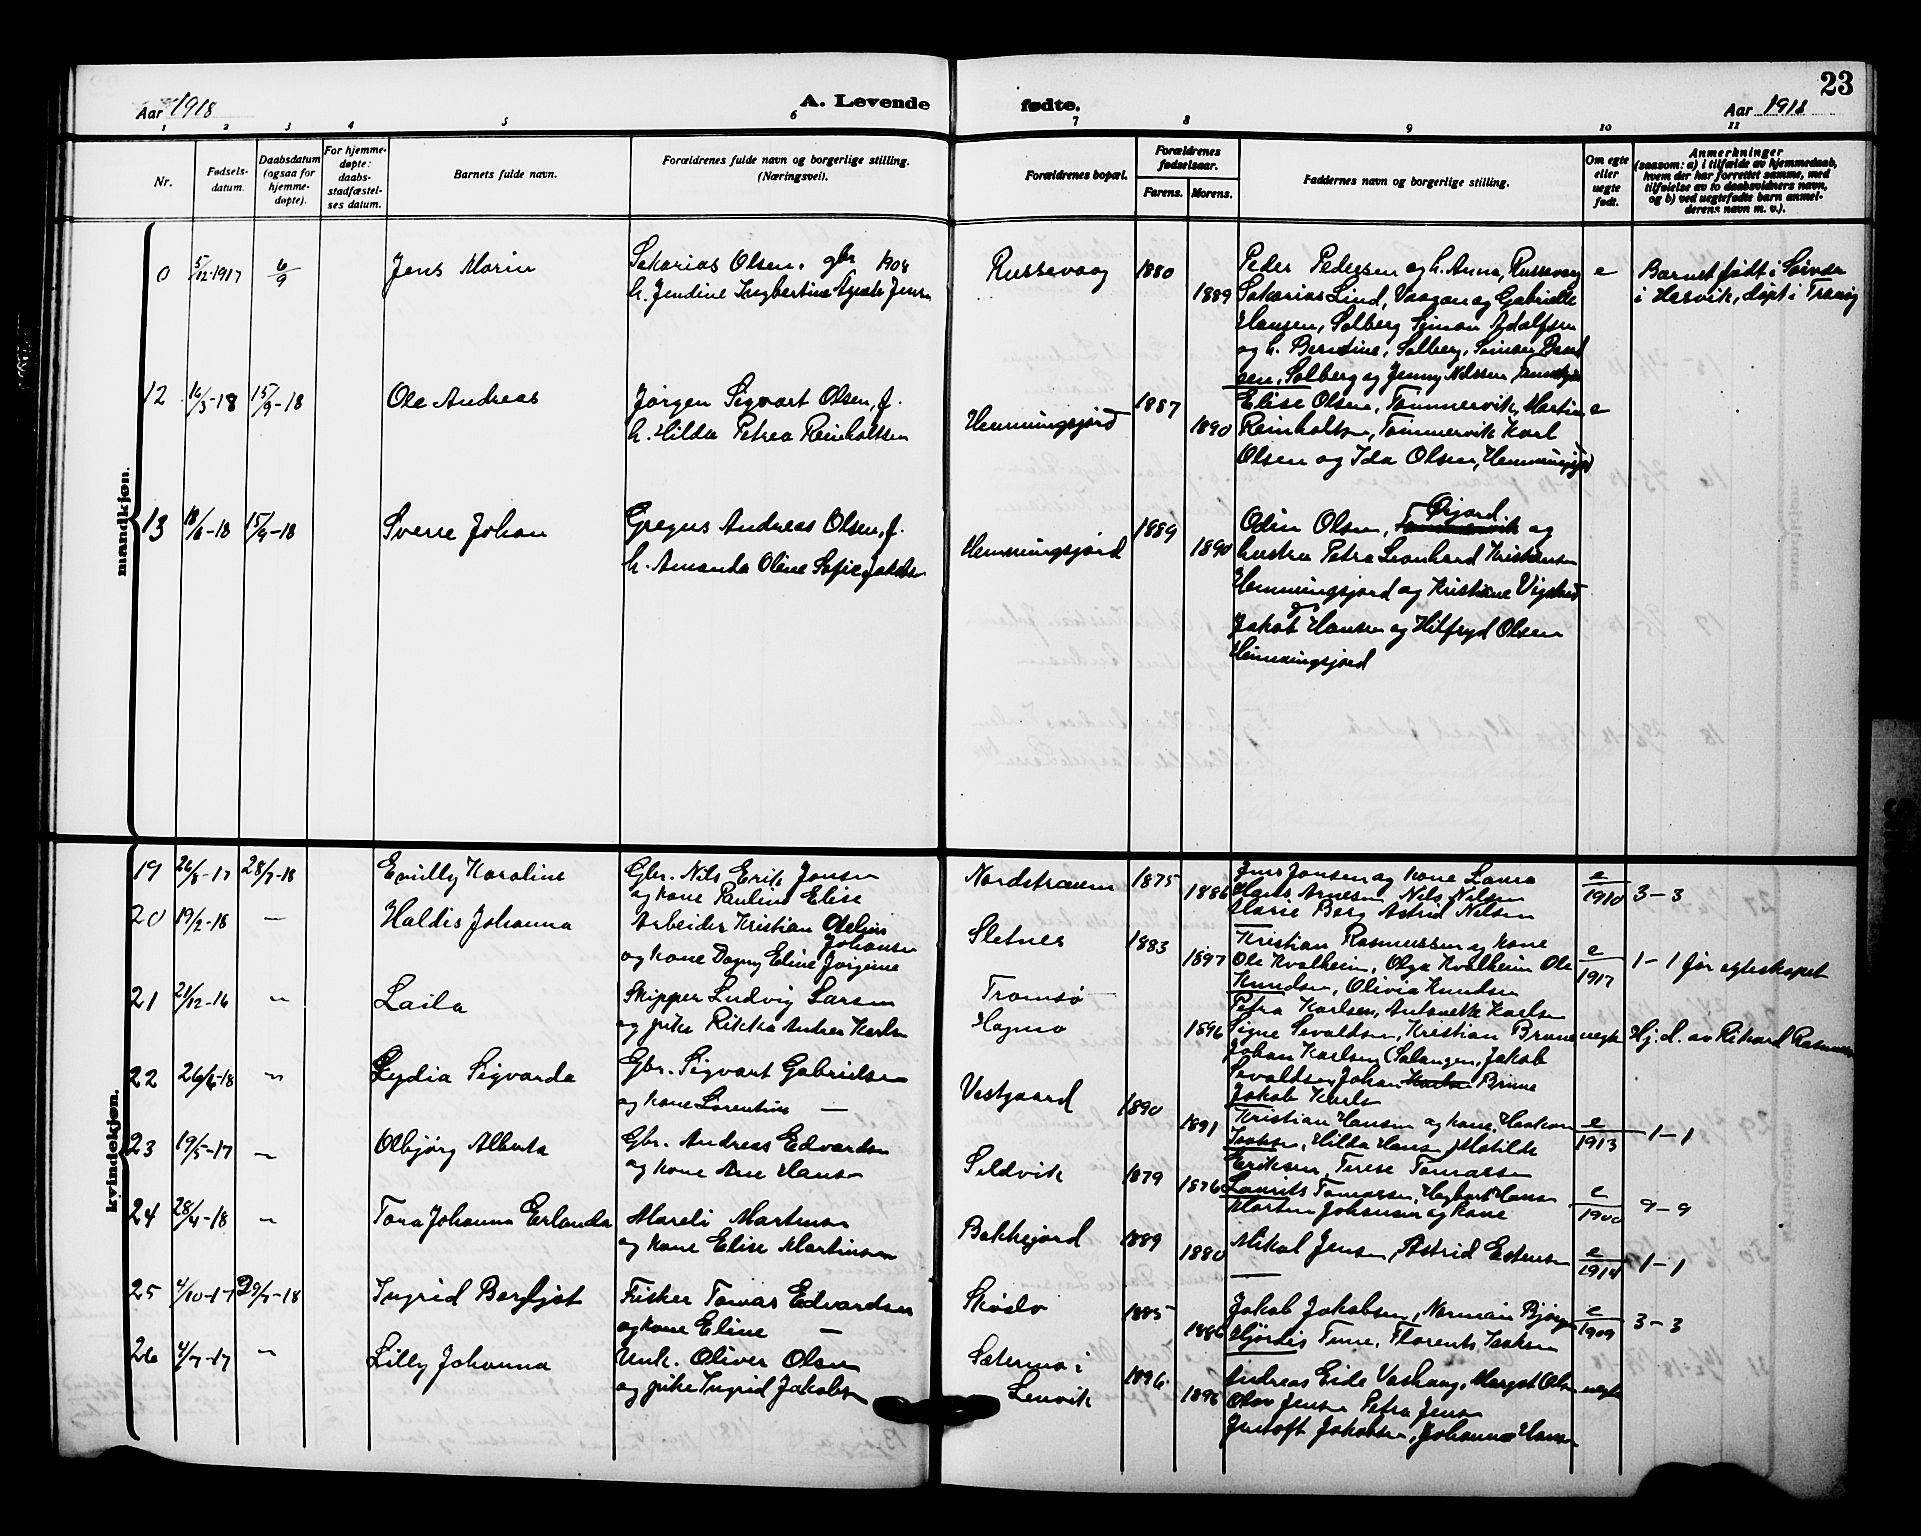 23
Aar 1918
A. Levende fødte.
Aar 1918
1 2 3 4 5 6 7 8 9 10 11
Nr.
Fødsels-
datum.
Daabsdatum
(ogsaa for
hjemme-
døpte).
For hjemme-
døpte:
daabs-
stadfæstel-
ses datum.
Barnets fulde navn.
Forældrenes fulde navn og borgerlige stilling.
(Næringsvei).
Forældrenes bopæl.
Forældrenes
fødselsaar.
Farens. Morens.
Faddernes navn og borgerlige stilling.
Om egte
eller
uegte
født.
Anmerkninger
(saasom: a) i tilfælde av hjemmedaab,
hvem der har forrettet samme, med
tilføielse av to daabsvidners navn,
og b) ved uegtefødte barn anmel-
derens navn m. v.).
mandkjøn.
0 5/12-1917 6/9 Jens Marin
Sakarias Olsen, gbr 1908
h. Jendine Ingbertine Jens
Russevaag 1880 1889
Peder Pedersen og h. Anna, Russevaag
Sakarias Lind, Vaagan og Gabrielle
Hansen, Solberg Simon Adolfsen
og h. Berntine, Solberg, Simon
sen, Solberg og Jenny Nilssen
e
Barnet født i
i Hasvik, døpt i Tranøy
12 16/5-18 15/9-18 Ole Andreas
Jørgen Sigvart Olsen, f.
h. Hilda Petrea Reinholtsen
Hemmingsjord 1887 1890
Elise Olsen, Tømmervik, Martin
Reinholtsen, Tømmervik Karl
Olsen og Ida Olsen, Hemmingsjord
e
13 18/6-18 15/9-18 Sverre Johan
Gregus Andreas Olsen, f.
h. Amanda Oline Sofie Jakobs
Hemmingsjord 1889 1890
Odin Olsen, Tømmervik Ørjord og
hustru Petra Leonhard Kristiansen
Hemmingsjord og Kristine Vigstad
Jakob Hansen og Hilfryd Olsen
Hemmingsjord
kvindekjøn.
19 26/8-17 28/7-18 Emilly Karoline
Gbr. Nils Erik Jonsen
og kone Pauline Elise
Nordstraumen 1875 1886
Jens Jonsen og kone Laura
Hans Arnesen Nils Nilsen
Marie Berg Astrid Nilsen
e/1910 3-3
20 19/2-18 — Haldis Johanna
Arbeider Kristian Johansen
og kone Dagny Eline Jørgine
Sletnes 1883 1897
Kristian Rasmussen og kone
Ole Kvalheim, Olga Kvalheim Ole
Knudsen, Olivia Knudsen
e/1917 1-1 før egteskapet
21 21/12-16 " Laila
Skipper Ludvig Larsen
og pike Rikka Andrea Karlsen
Tromsø
Hagmo 1896
Petra Karlsen, Antonette Karlsen
Signe Sevaldsen, Kristian Brune
Johan Karlsen (Salangen, Jakob
Sevaldsen, Johan Karlsen Brune
Jakob Karls
uegte Hj. d. av Rikard
22 26/6-18 " Lydia Sigvarda
Gbr. Sigvart Gabrielsen
og kone Lorentine —
Vestgaard 1890 1891
Kristian Hansen og kone, Haakon
Hilda Hans Matilde
Eriksen, Terese Tomassen
e/1913 1-1
23 19/5-17 " Olbjørg Alberta
Gbr. Andreas Edvardsen
og kone Ane Hansen
Seldvik 1879 1876
Laurits Tomassen, Hagbart Hansen
Morten Johansen og kone
e/1900 9-9
24 28/4-18 " Tora Johanna Erlanda
Mareli Martinsen
og kone Elise Martinsen
Bakkejord 1889 1880
Mikal Jensen, Astrid Estensen
e/1914 1-1
25 4/10-17 29/7-18 Ingrid Bergljot
Fisker Tomas Edvardsen
og kone Eline —
Skøslv 1885 1886
Jakob Jakobsen, Normann
Hjørdis Tune, Florents Isaksen
e/1909 3-3
26 4/7-17 " Lilly Johanna
Unk. Oliver Olsen
og pike Ingrid Jakobsen
Sætermo i
Lenvik 1896 1896
Andreas Eide Vashaug, Margot Olsen
Olav Jensen Petra Jensen
Jentoft Jakobsen, Johanna Hansen
uegte